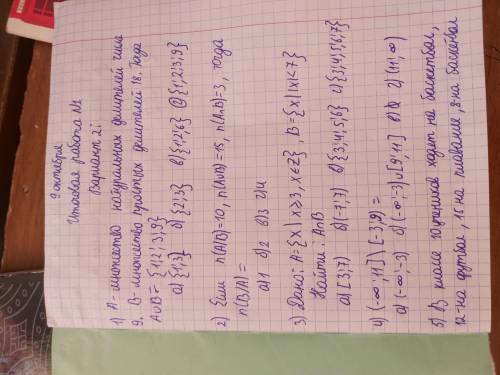 9 октября
Итоговая работа №1
Вариант 2:
1) A - множество натуральных делителей числа
9. B - множество простых делителей 18. Тогда
A∪B = {1; 2; 3; 9}
а) {1;3} б) {2;3} в) {1;2;6} г) {1;2;3;9}
2) Если n(A/B)=10, n(A∪B)=15, n(A∩B)=3, тогда
n(B/A)=
а) 1 б) 2 в) 3 г) 4
3) Дано: A={x | x≥3, x∈Z}, B={x | x<7}
Найти: A∩B
а) [3;7) б) (-7;7) в) {3;4;5;6} г) {3;4;5;6;7}
4) (-∞;11] \ [-3;9) =
а) (-∞;-3) б) (-∞;-3)∪[9;11] в) Q г) (11;∞)
5) В классе 10 учеников ходят на баскетбол,
12-на футбол, 15 на плавание, 8-на баскетбол